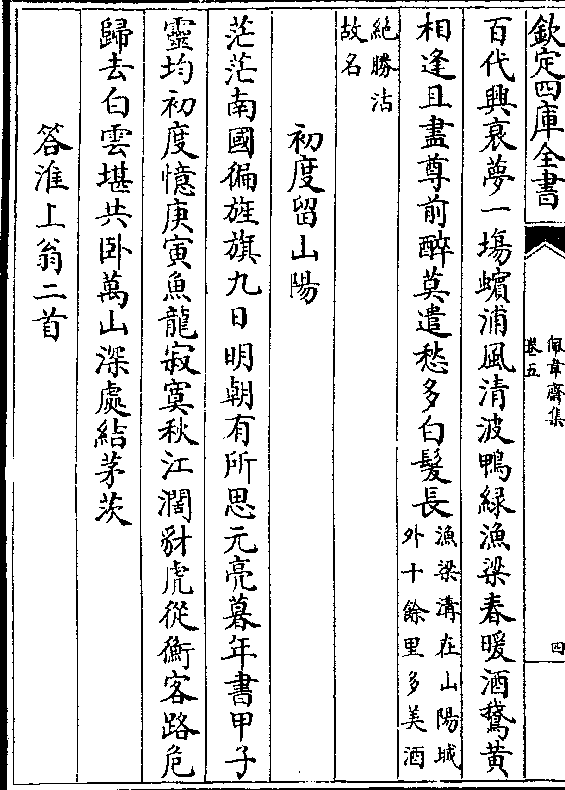 欽定四庫全書
佩韋齋集
卷五
四
百代興衰夢一場蠙浦風清波鴨綠漁梁春暖酒鵞黄
相逢且盡尊前醉莫遣愁多白髮長漁梁溝在山陽城
外十餘里多美酒
絶勝沽
故名
初度留山陽
茫茫南國徧旌旗九日明朝有所思元亮暮年書甲子
靈均初度憶庚寅魚龍寂寞秋江濶豺虎從衡客路危
歸去白雲堪共卧萬山深處結茅茨
答淮上翁二首